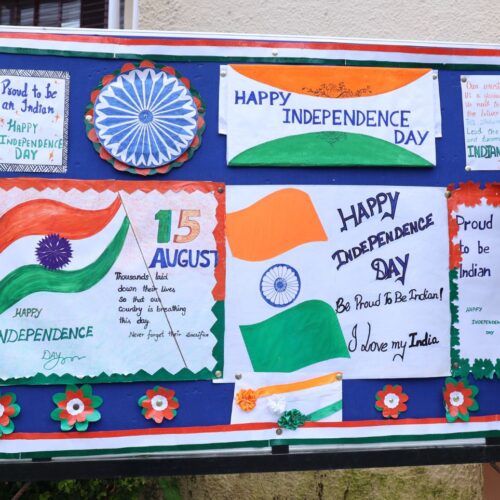 Proud to be
an Indian
HAPPY
INDEPENDENCE
DAY
HAPPY
INDEPENDENCE
DAY
INDIAN
15
AUGUST
Thousands laid
down their lives
so that our
country is breathing
this day.
Never forget their sacrifice
HAPPY
INDEPENDENCE
DAY
HAPPY
INDEPENDENCE
DAY
Be Proud To Be Indian!
I love my India
Proud
to be
Indian
HAPPY
INDEPENDENCE
DAY